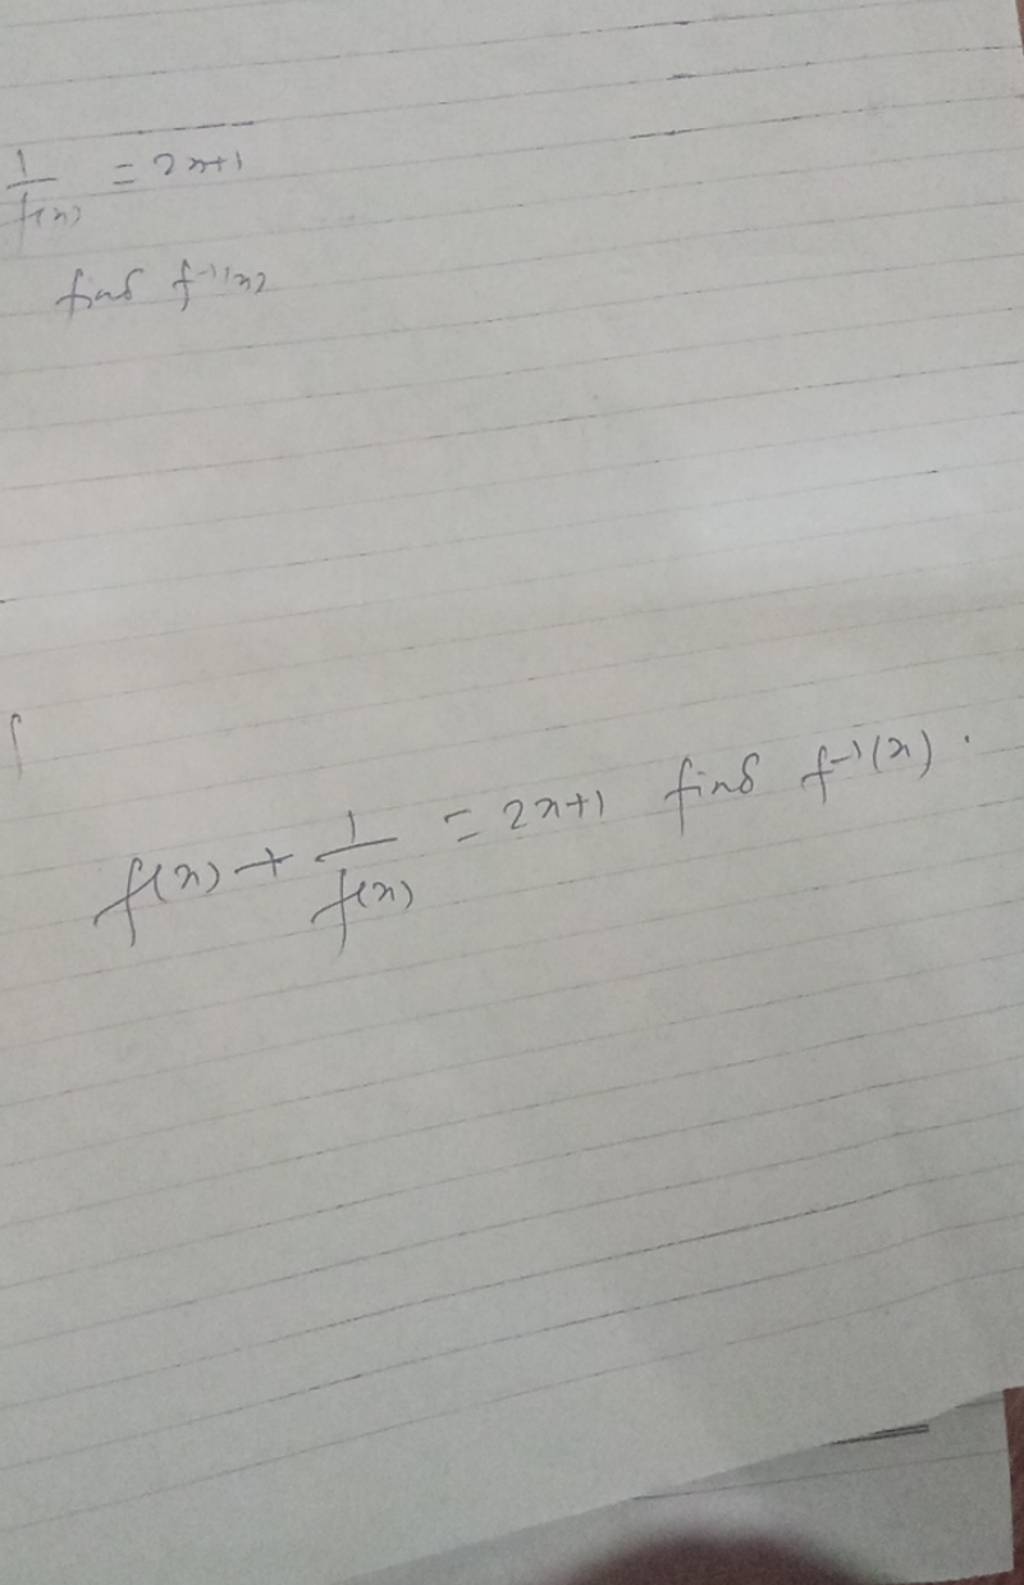 1/f(x) = 2x+1
find f⁻¹(x)
f(x) + 1/f(x) = 2x+1 find f⁻¹(x).